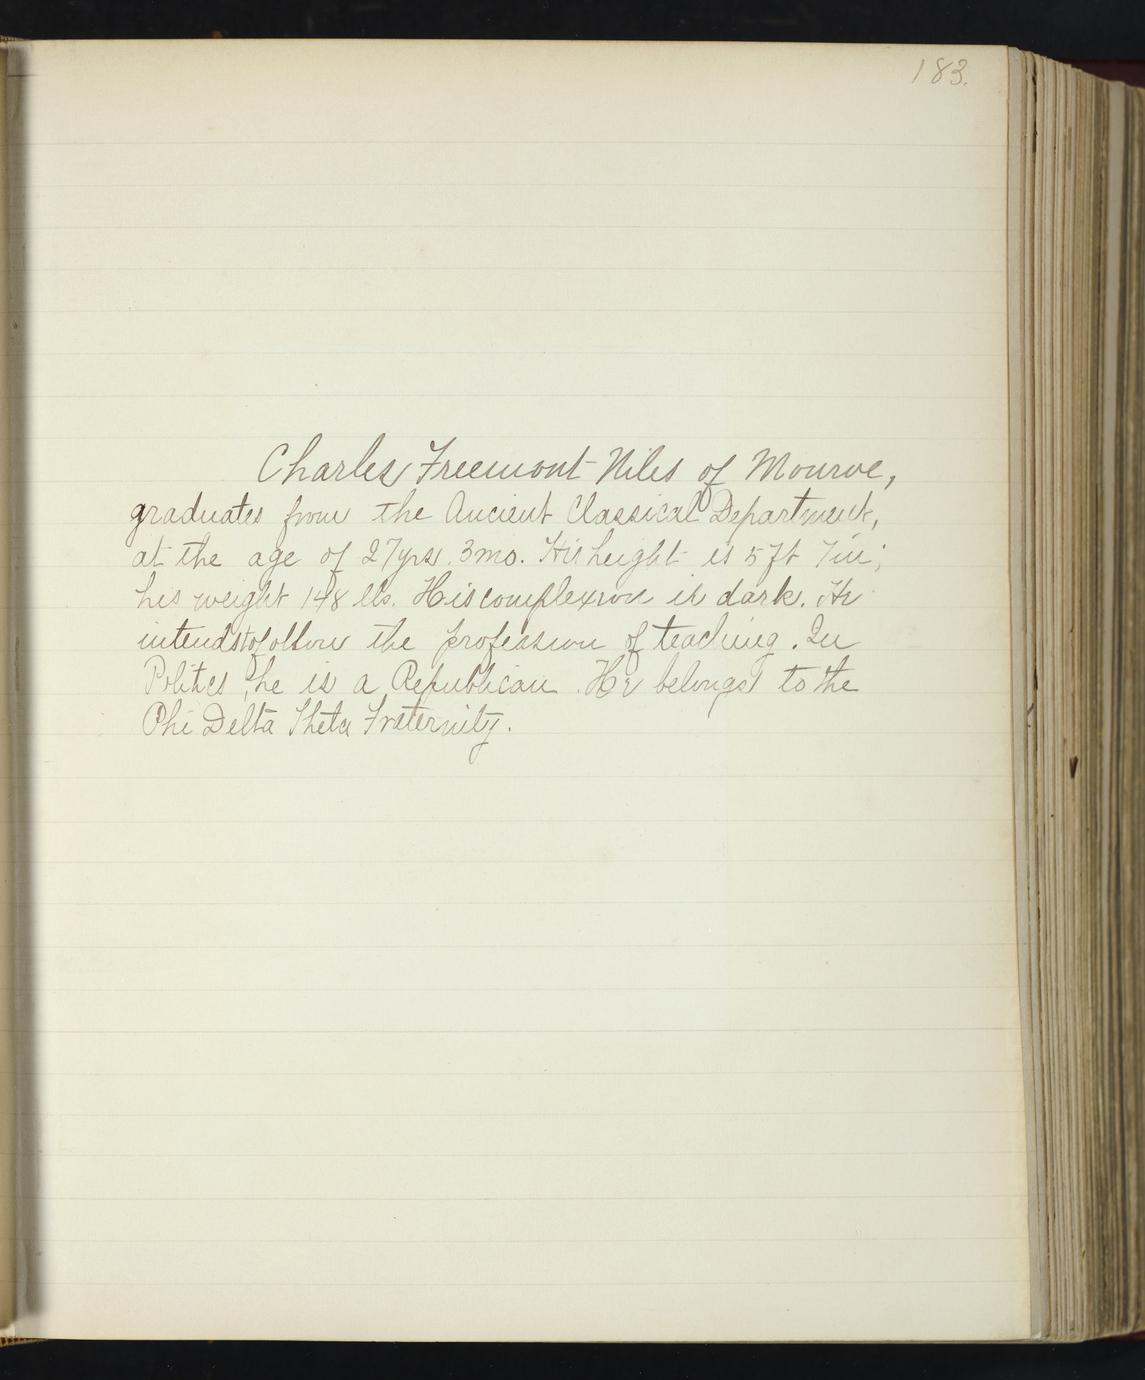 183.
Charles Freemont Niles of Monroe,
graduates from the Ancient Classical Department,
at the age of 27yrs. 3mo. His height is 5 ft 7in;
his weight 148 lbs. His complexion is dark. He
intends to follow the profession of teaching. In
Politics, he is a Republican. He belongs to the
Phi Delta Theta Fraternity.